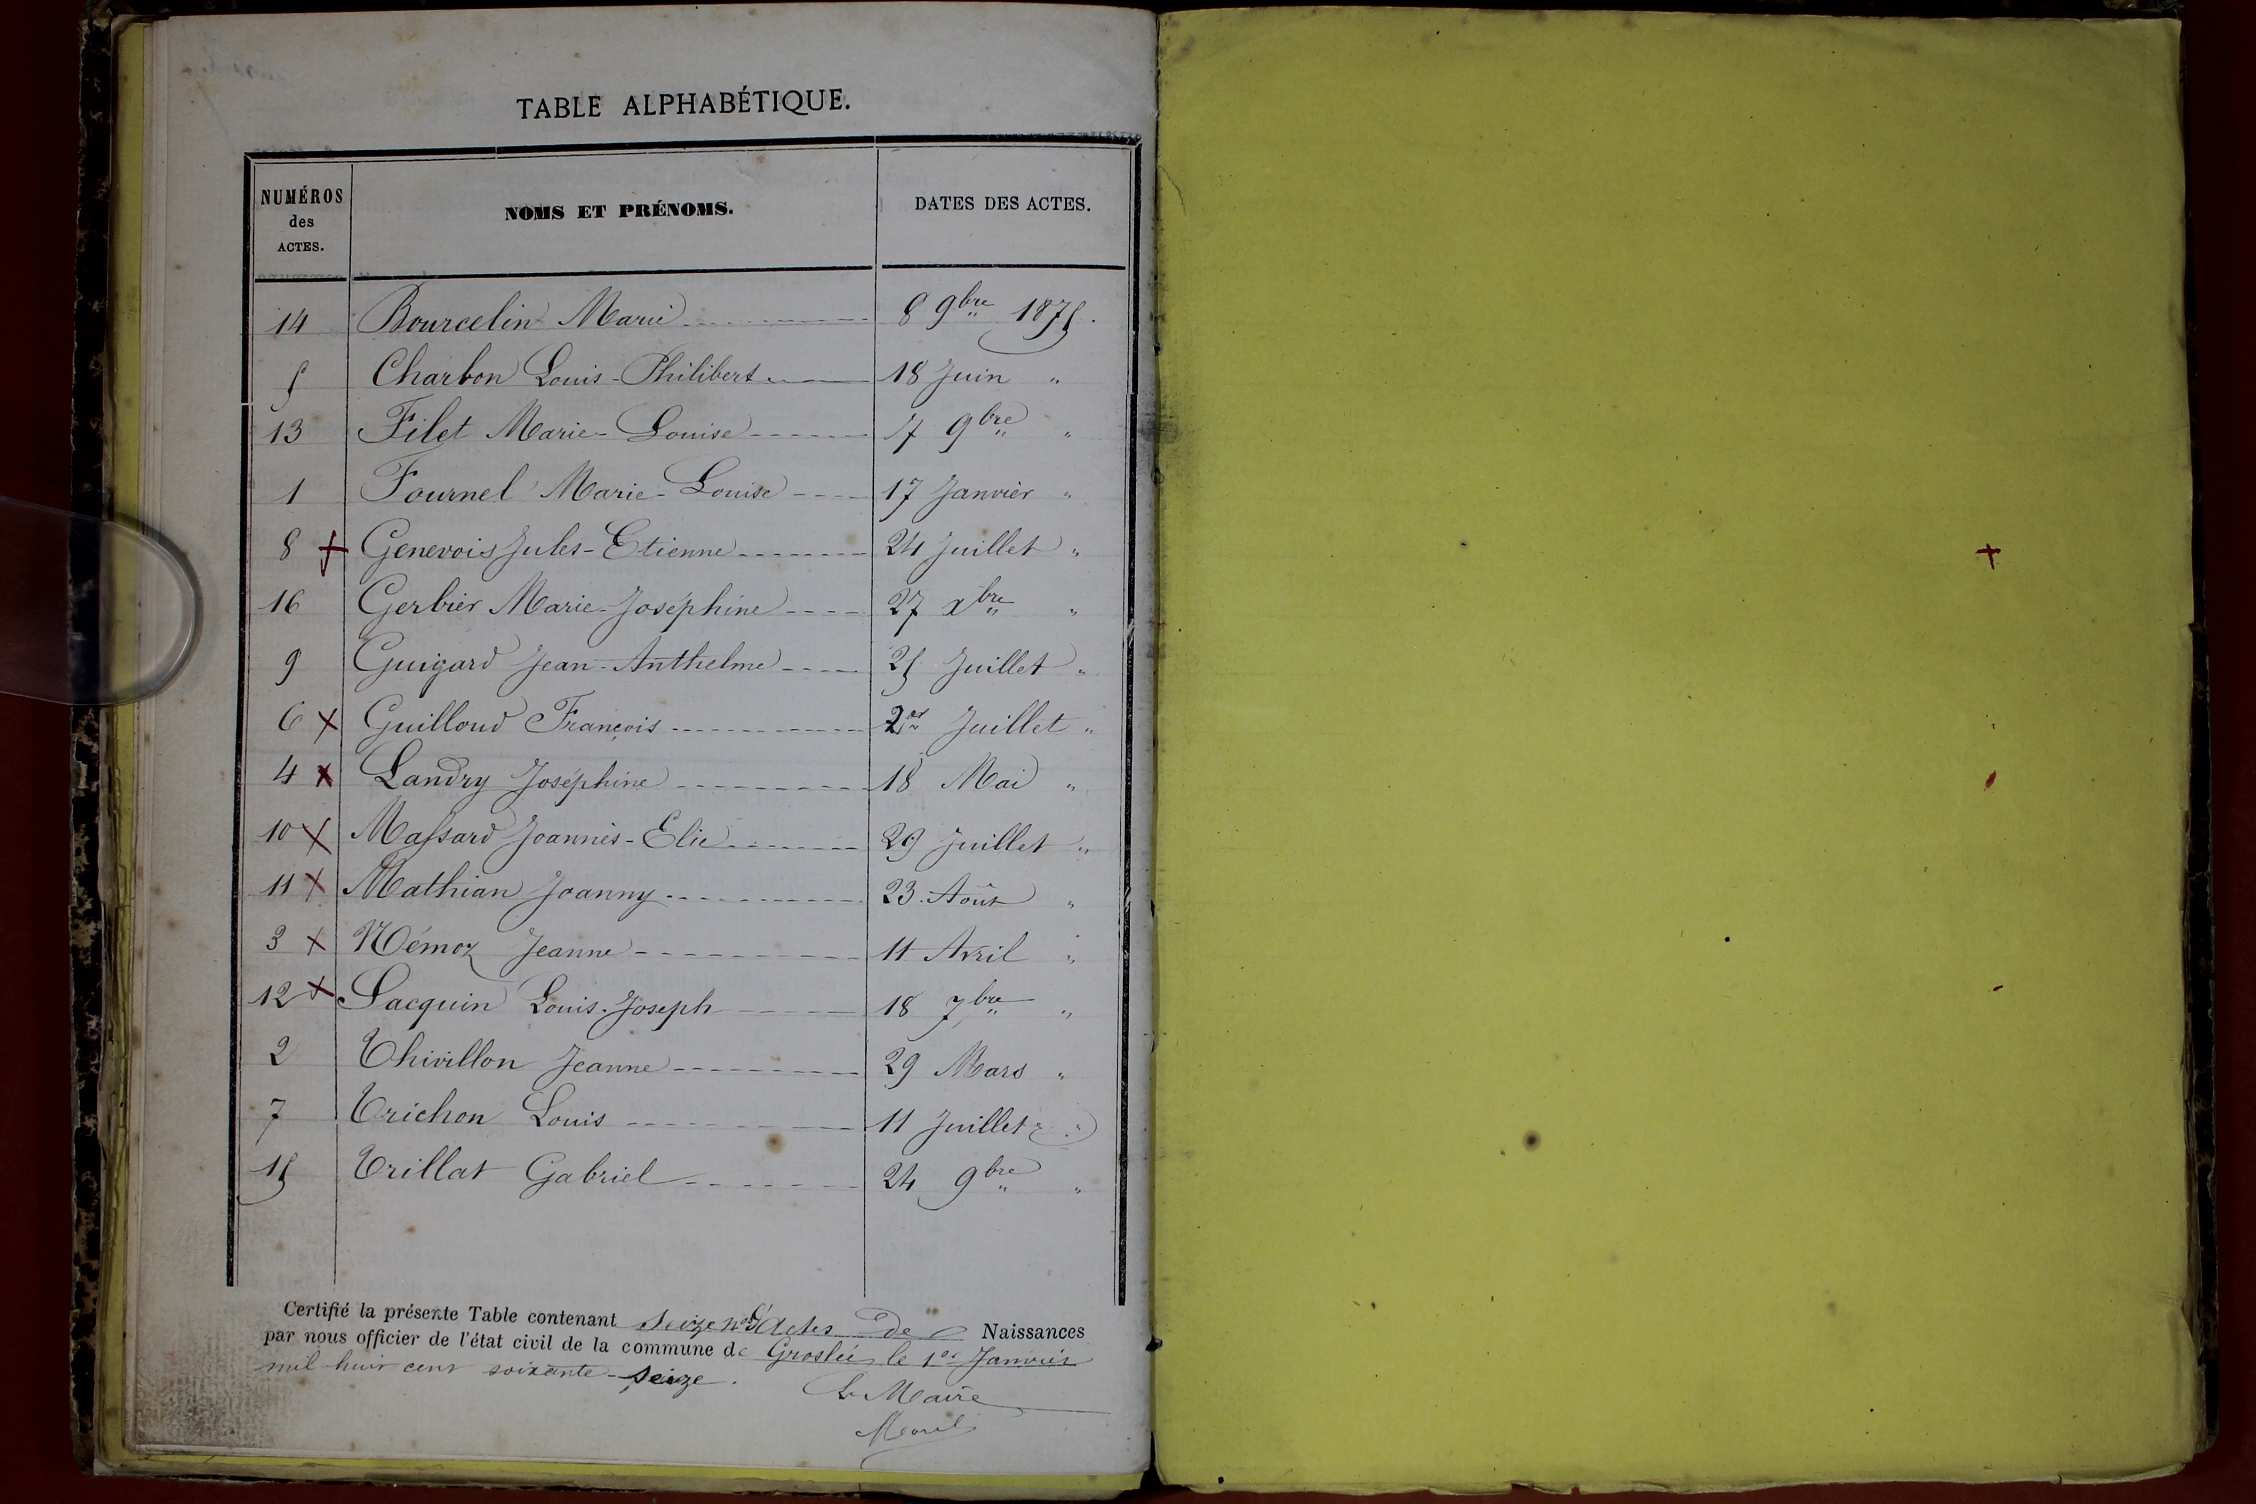 TABLE ALPHABÉTIQUE.
NUMÉROS des ACTES. NOMS ET PRÉNOMS. DATES DES ACTES.
14 Bourcelin Marie 8 9bre 1875.
5 Charbon Louis-Philibert 18 Juin "
13 Filet Marie-Louise 7 9bre "
1 Fournel Marie-Louise 17 Janvier "
8 + Genevois Jules-Etienne 24 Juillet "
16 Gerbier Marie-Joséphine 27 Xbre "
9 Guigard Jean-Anthelme 25 Juillet "
6 x Guilloud François 2 Juillet "
4 x Landry Joséphine 18 Mai "
10 x Massard Joannès-Elie 29 Juillet "
11 x Mathian Joanny 23 Août "
3 x Némoz Jeanne 11 Avril "
12 x Sacquin Louis-Joseph 18 7bre "
2 Thivillon Jeanne 29 Mars "
7 Trichon Louis 11 Juillet "
15 Trillat Gabriel 24 9bre "
Certifié la présente Table contenant seize Actes de Naissances
par nous officier de l'état civil de la commune de Groslée, le 1er Janvier
mil huit cent soixante-seize.
Le Maire